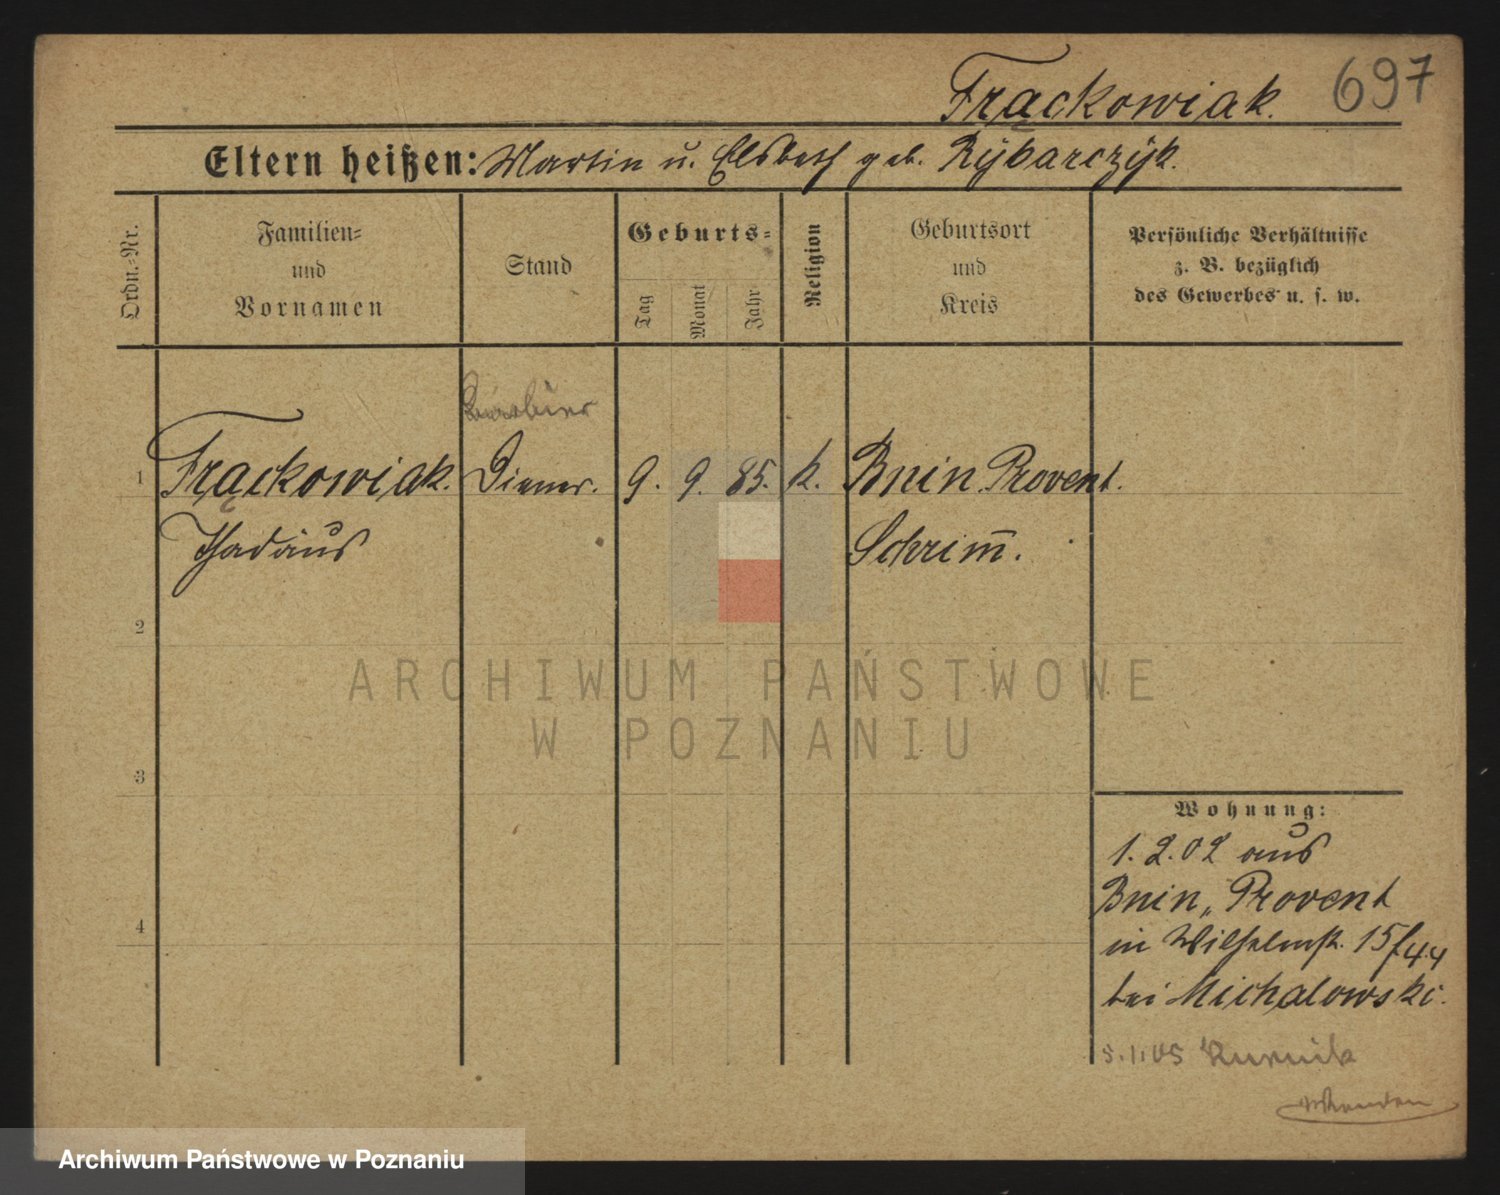 Frąckowiak. 697
Eltern heißen: Martin u. Elsbeth geb. Rybarczyk.
Ordn.-Nr.
Familien-
und
Vornamen
Stand
Geburts-
Tag
Monat
Jahr
Religion
Geburtsort
und
Kreis
Persönliche Verhältnisse
z. B. bezüglich
des Gewerbes u. s. w.
Barbier
1 Frąckowiak. Diener. 9. 9. 85. k. Bnin Provent.
Thadäus Schrim̅.
2
3
4
Wohnung:
1.2.02 aus
Bnin, Provent
in Wilhelmst. 15
bei Michalowski.
5.1.05 Kurnik
ARCHIWUM PAŃSTWOWE
W POZNANIU
Archiwum Państwowe w Poznaniu